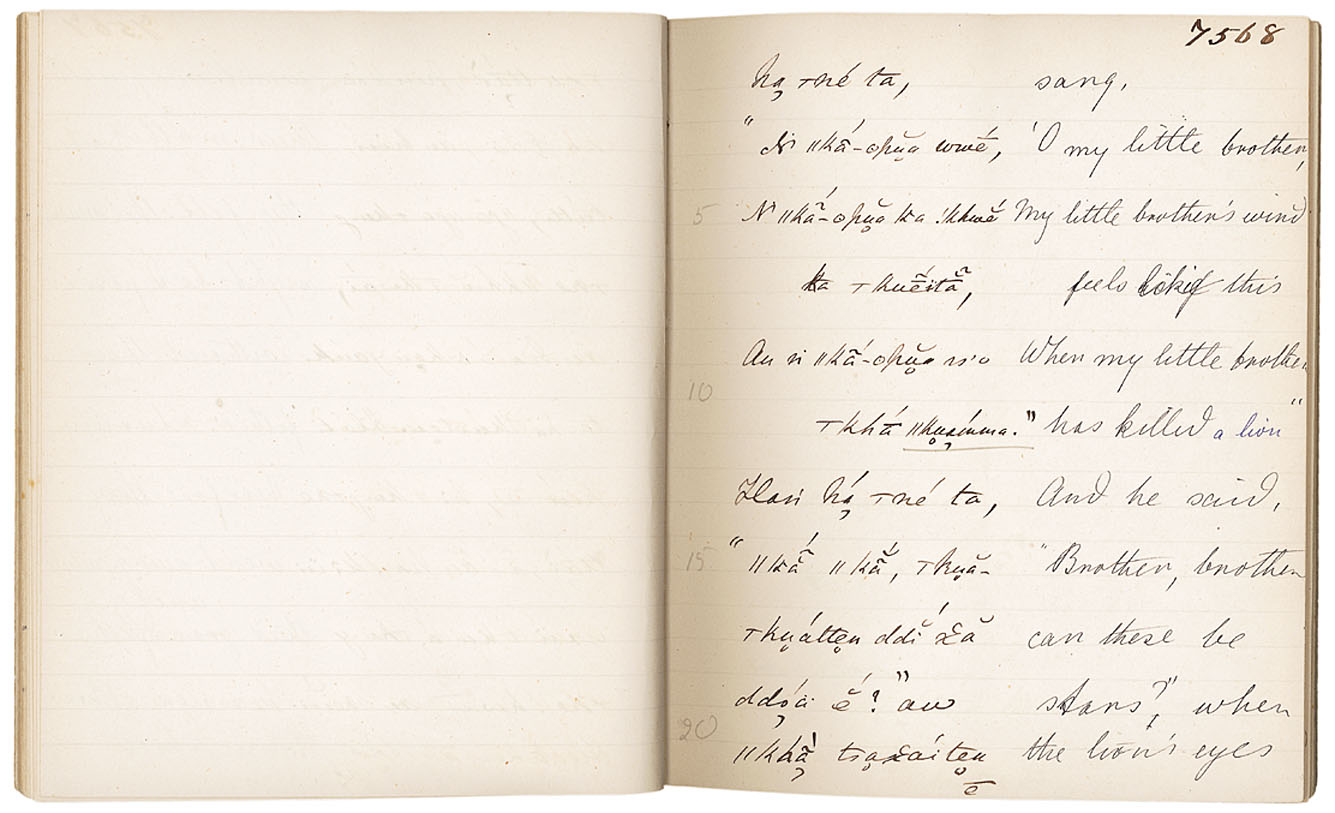 7568
hą ⊤né ta, sang,
" Ń ǁkā́-opŭą wwḗ, 'O my little brother,
5 N ǁkā̃́-opŭą ka ꜝkhwḗ My little brother's wind
ta ⊤kuḗitā̃, feels like this
Au n ǁkā́-opŭą s'o When my little brother
10
⊤khā́ ǁkuą́mma." has killed a lion"
Han hą́ ⊤né ta, And he said,
15 " ǁkā̃́ ǁkā̃́, ⊤kuą̆- "Brother, brother
⊤kuátten ddí χă can these be
ddóä é̆?" au stars?", when
20
ǁkhą̃́ tsaχáiten the lion's eyes
ē